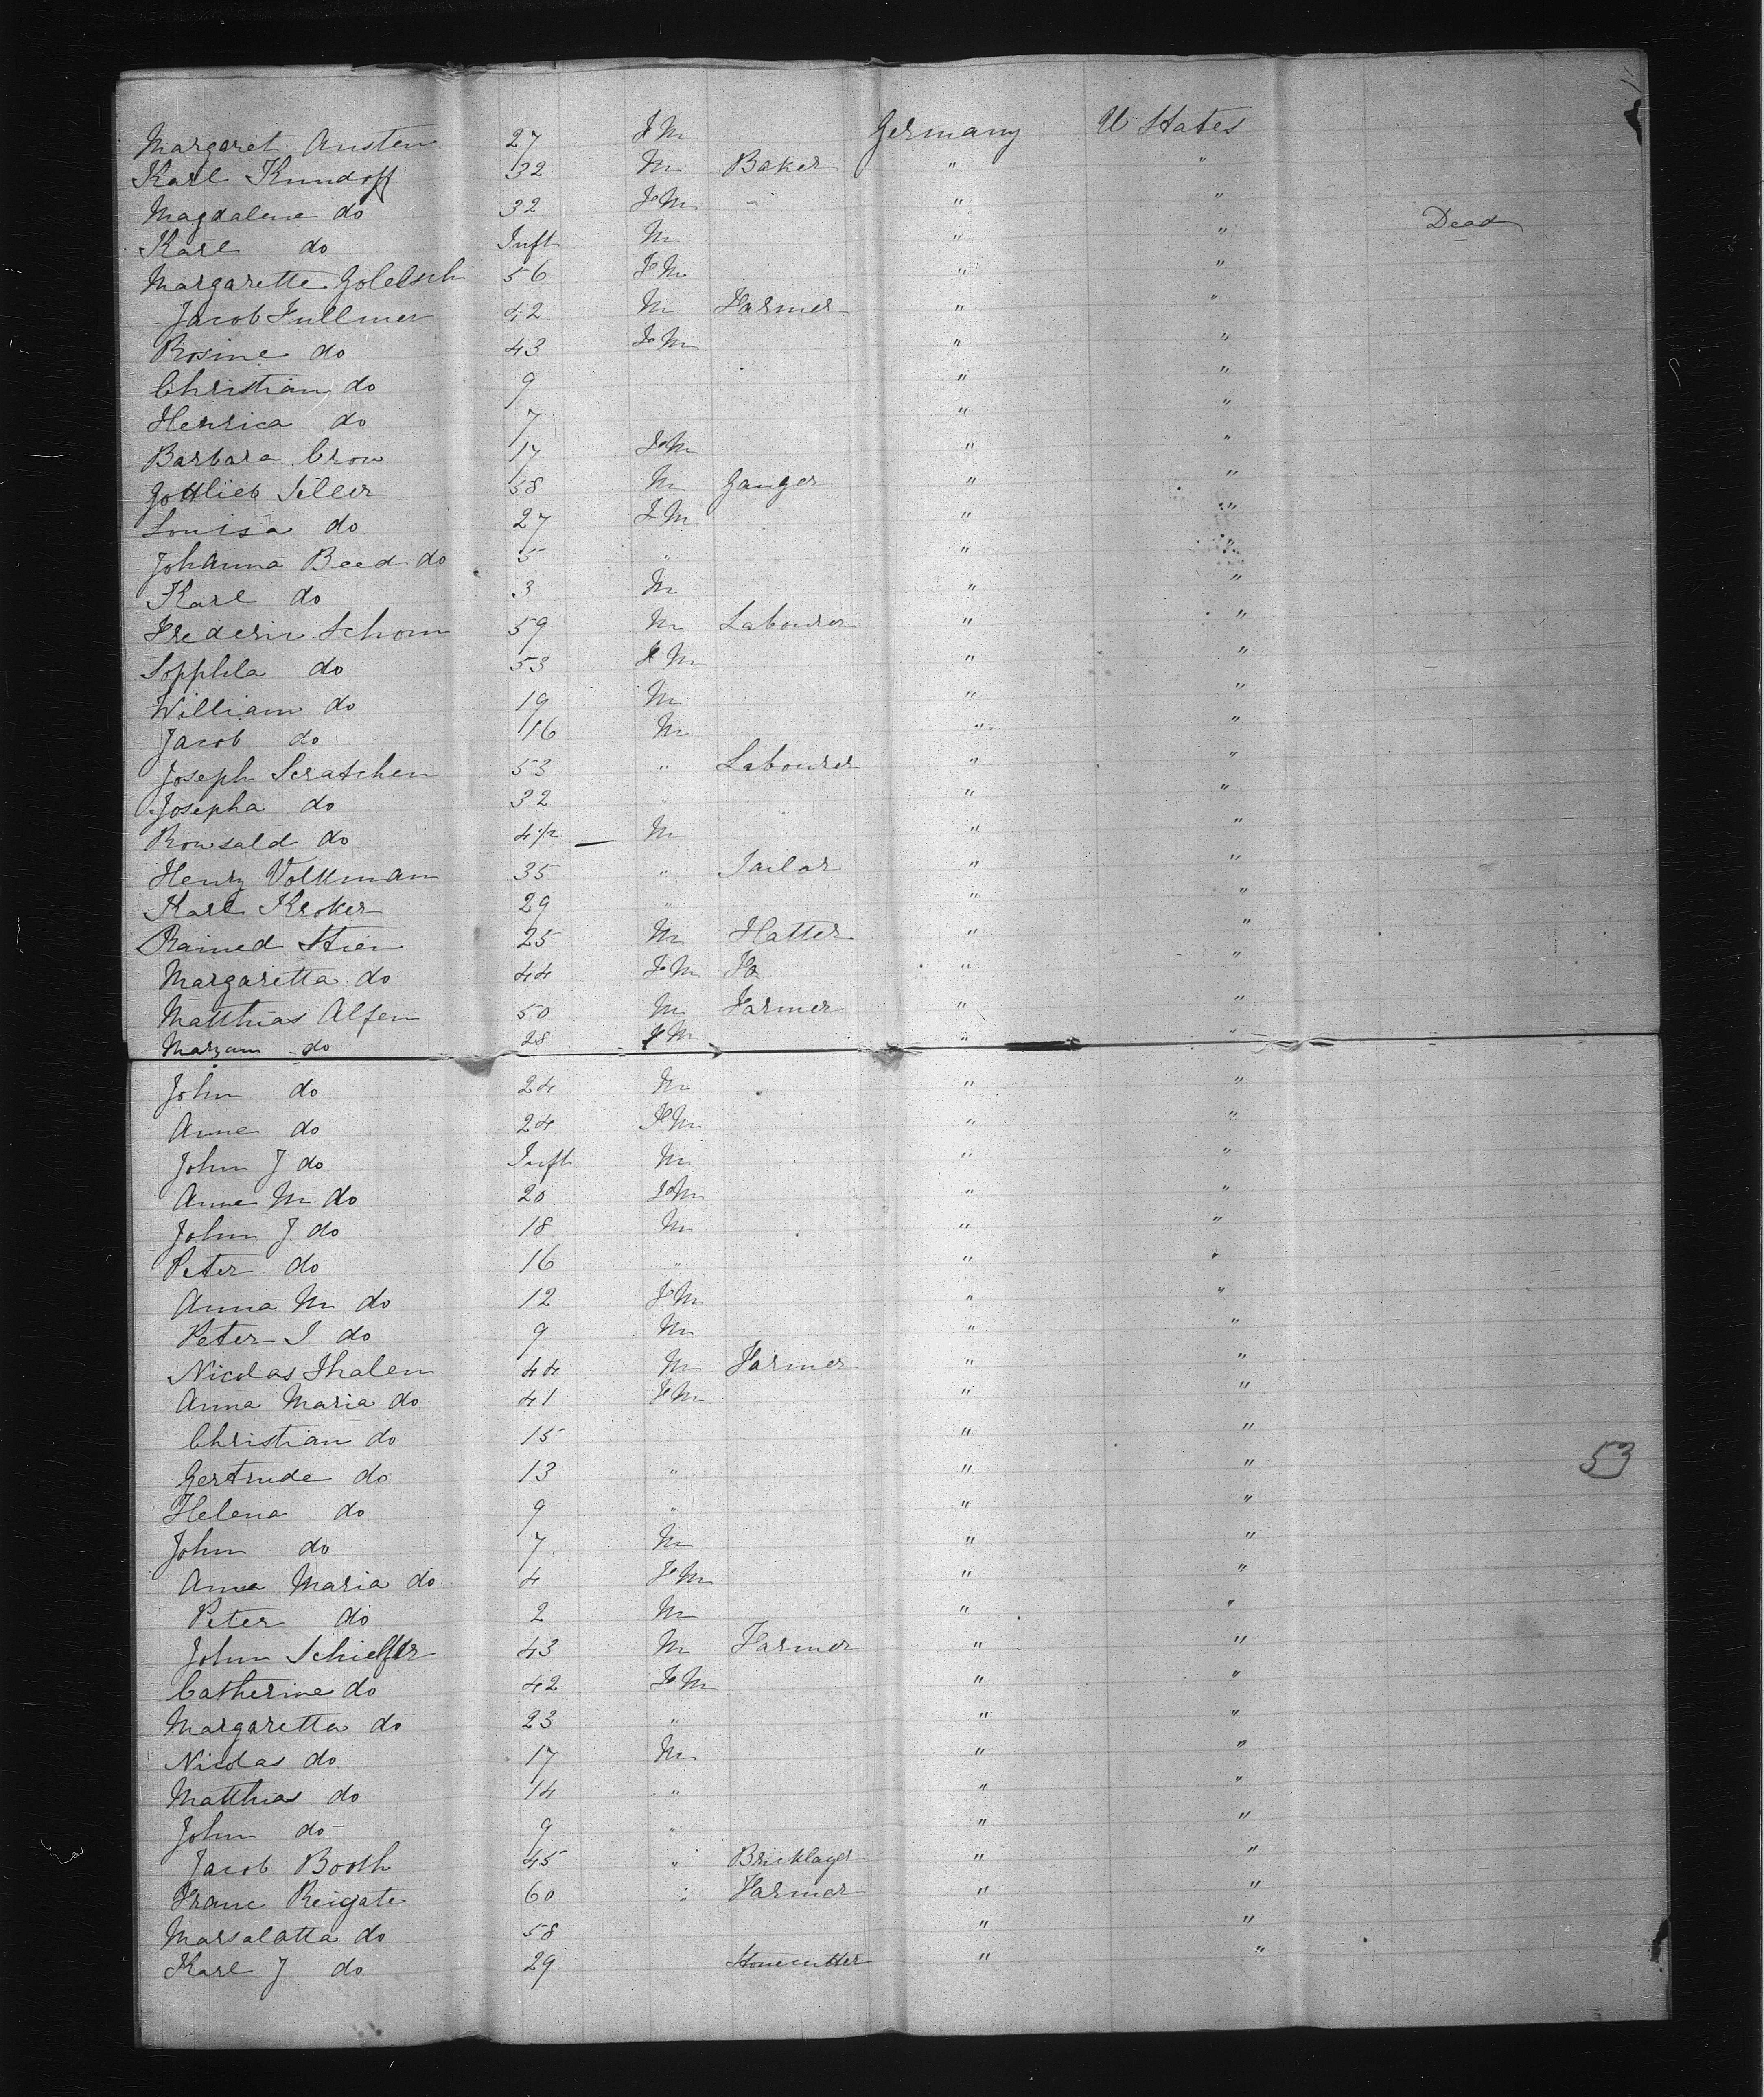 Margaret Austen 27 FM Germany U States
Karl Kundoff 32 M Baker " "
Magdalene do 32 FM " "
Karl do Inft M " " Dead
Margarette Goletsch 56 FM " "
Jacob Fullmer 42 M Farmer " "
Rosine do 43 FM " "
Christian do 9 " "
Henrica do 7 " "
Barbara Crow 17 FM " "
Gottlieb Siller 58 M Ganger " "
Louisa do 27 FM " "
Johanna Beed do 5 " " "
Karl do 3 M " "
Frederic Schom 59 M Labourer " "
Sopphla do 53 FM " "
William do 19 M " "
Jacob do 16 M " "
Joseph Scratchen 53 " Labourer " "
Josepha do 32 " " "
Rowsald do 4 1/2 M " "
Henry Volkman 35 " Tailor " "
Karl Kroker 29 " " "
Rained Stien 25 M Hatter " "
Margaretta do 44 FM Ha " "
Matthias Alfen 50 M Farmer " "
Margam do 28 FM " "
John do 24 M " "
Anne do 24 FM " "
John J do Inft M " "
Anne M do 20 FM " "
John J do 18 M " "
Peter do 16 " " "
Anna M do 12 FM " "
Peter J do 9 M " "
Nicolas Thalen 44 M Farmer " "
Anna Maria do 41 FM " "
Christian do 15 " "
Gertrude do 13 " " " 53
Helena do 9 " " "
John do 7 M " "
Anna Maria do 4 FM " "
Peter do 2 M " "
John Schieffer 43 M Farmer " "
Catherine do 42 FM " "
Margaretta do 23 " " "
Nicolas do 17 M " "
Matthias do 14 " " "
John do 9 " " "
Jacob Booth 45 " Bricklayer " "
Franc Reigate 60 " Farmer " "
Marsalatta do 58 " "
Karl J do 29 Stonecutter " "